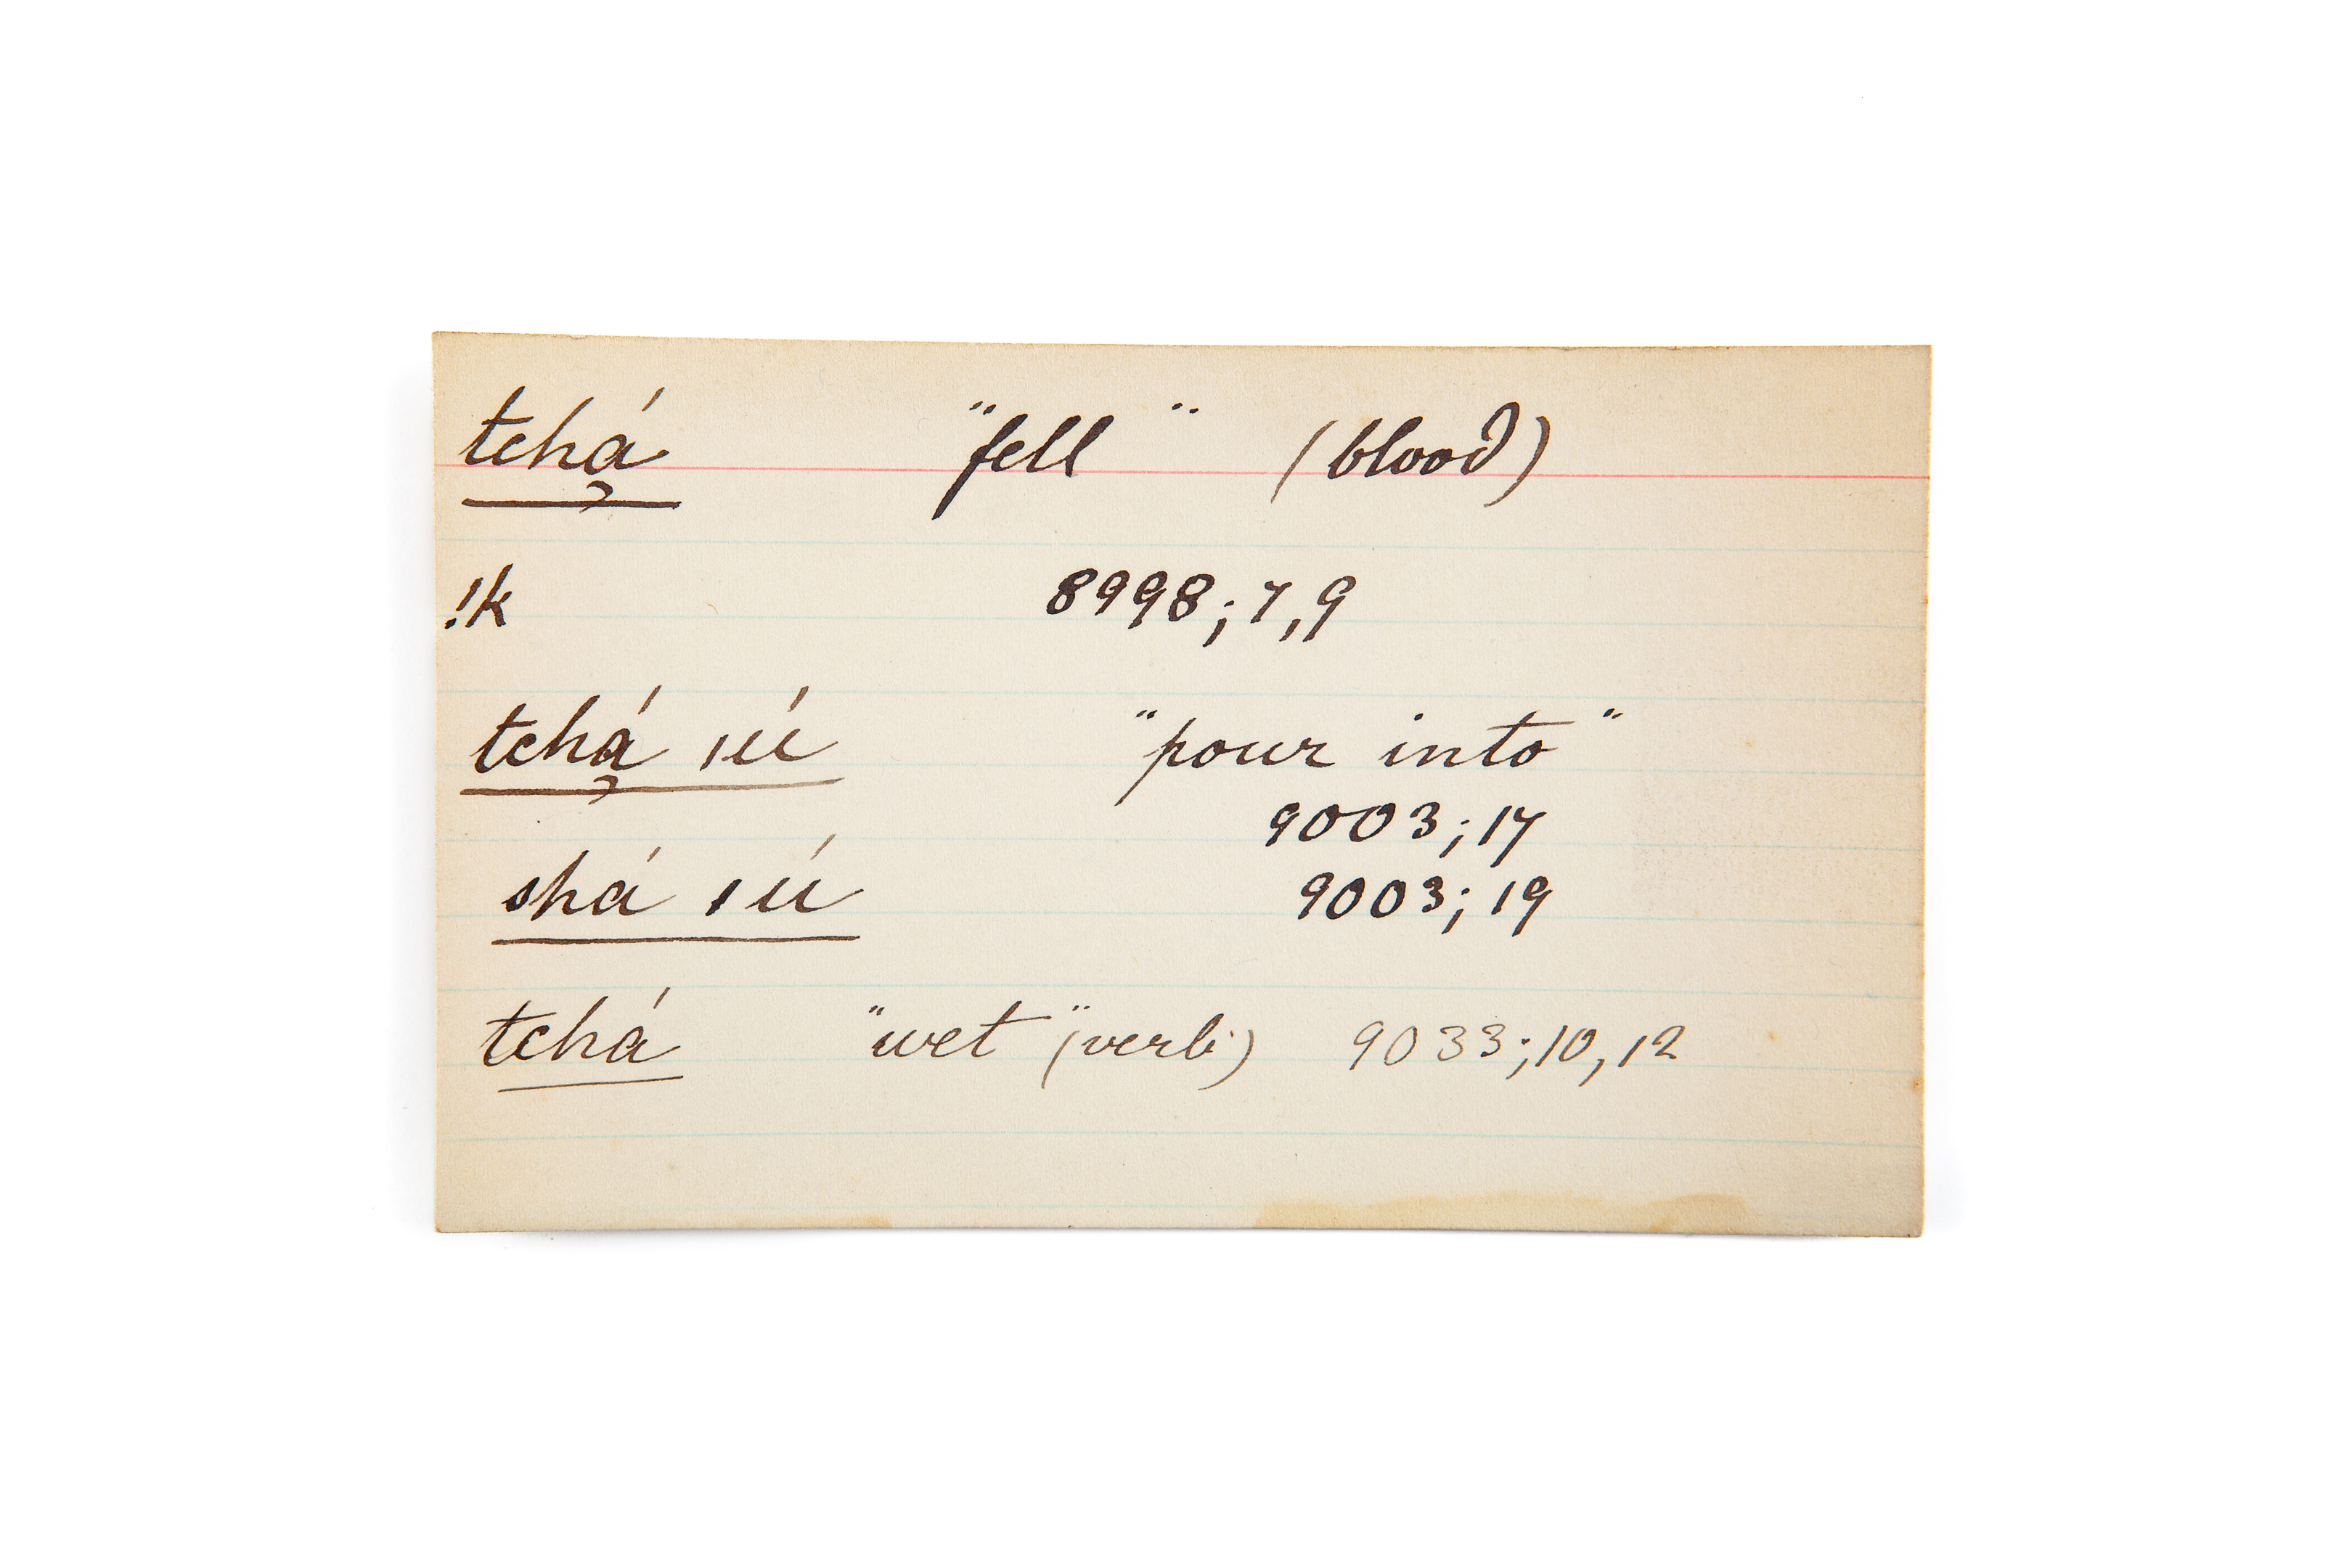 tchá̦ "fell" (blood)
!k 8998; 7, 9
tchá̦ ı́ú "pour into"
9003; 17
shá ıú 9003; 19
tchá "wet" (verb) 9033; 10, 12